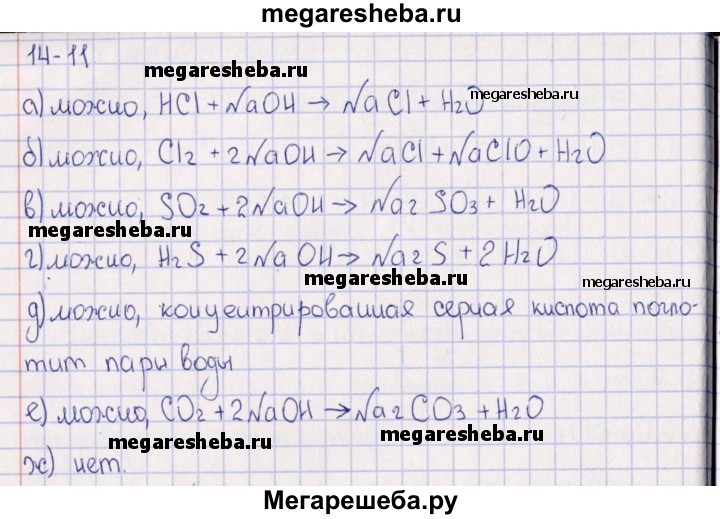 megaresheba.ru
14-11
megaresheba.ru
а) можно, HCl + NaOH → NaCl + H2O
megaresheba.ru
б) можно, Cl2 + 2NaOH → NaCl + NaClO + H2O
в) можно, SO2 + 2NaOH → Na2SO3 + H2O
megaresheba.ru
г) можно, H2S + 2NaOH → Na2S + 2H2O
megaresheba.ru
megaresheba.ru
д) можно, концентрированная серная кислота погло-
тит пары воды
е) можно, CO2 + 2NaOH → Na2CO3 + H2O
megaresheba.ru
megaresheba.ru
ж) нет.
Мегарешеба.ру